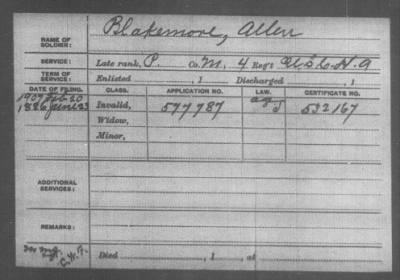 NAME OF SOLDIER: Blakemore, Allen
SERVICE: Late rank, P. Co. M, 4 Reg't U S C H A
TERM OF SERVICE: Enlisted , 1 Discharged , 1
DATE OF FILING. CLASS. APPLICATION NO. LAW. CERTIFICATE NO.
1907 Feb 20
1886 June 23 Invalid, 577787 532167
Widow,
Minor,
ADDITIONAL SERVICES:
REMARKS:
Died , 1 , at